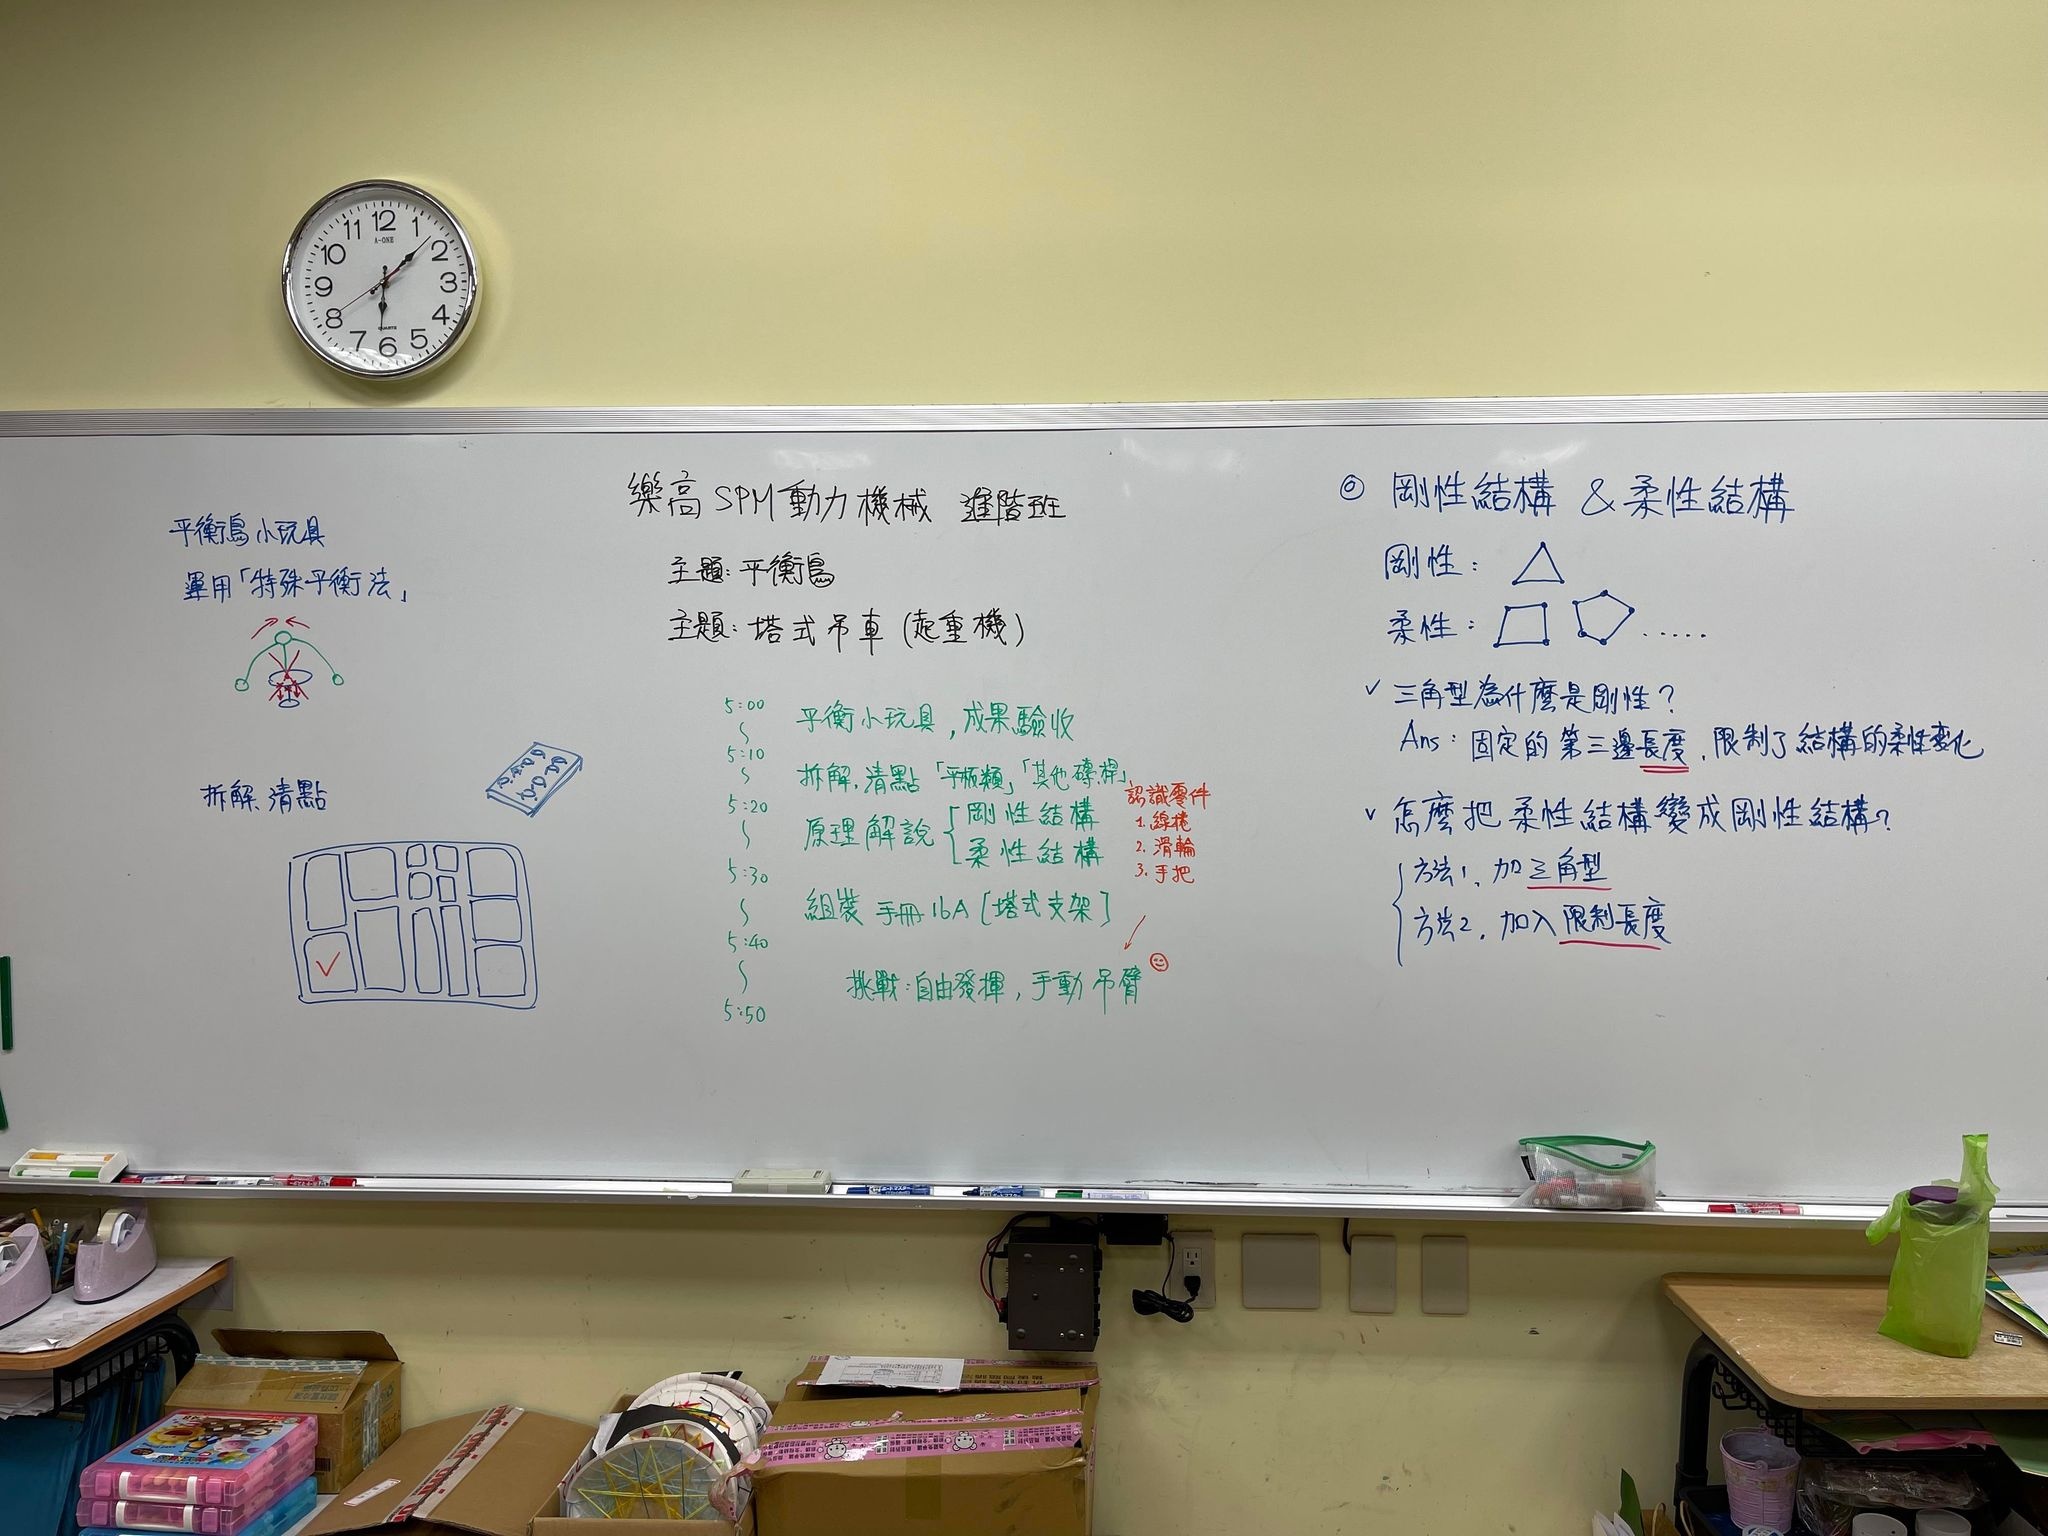 12
1
2
3
4
5
6
7
8
9
10
11
A-ONE
QUARTZ
平衡鳥小玩具
運用「特殊平衡法」
拆解、清點
樂高SPM動力機械 進階班
主題:平衡鳥
主題:塔式吊車(起重機)
5:00
平衡小玩具,成果驗收
5:10
拆解、清點「平板類」「其他磚、桿」
5:20
原理解說 剛性結構
柔性結構
5:30
組裝 手冊16A[塔式支架]
5:40
挑戰:自由發揮,手動吊臂
5:50
認識零件
1.線捲
2.滑輪
3.手把
◎ 剛性結構 & 柔性結構
剛性:
柔性: .....
✓ 三角型為什麼是剛性?
Ans:固定的第三邊長度,限制了結構的柔性变化
✓ 怎麼把柔性結構變成剛性結構?
方法1、加三角型
方法2、加入限制長度